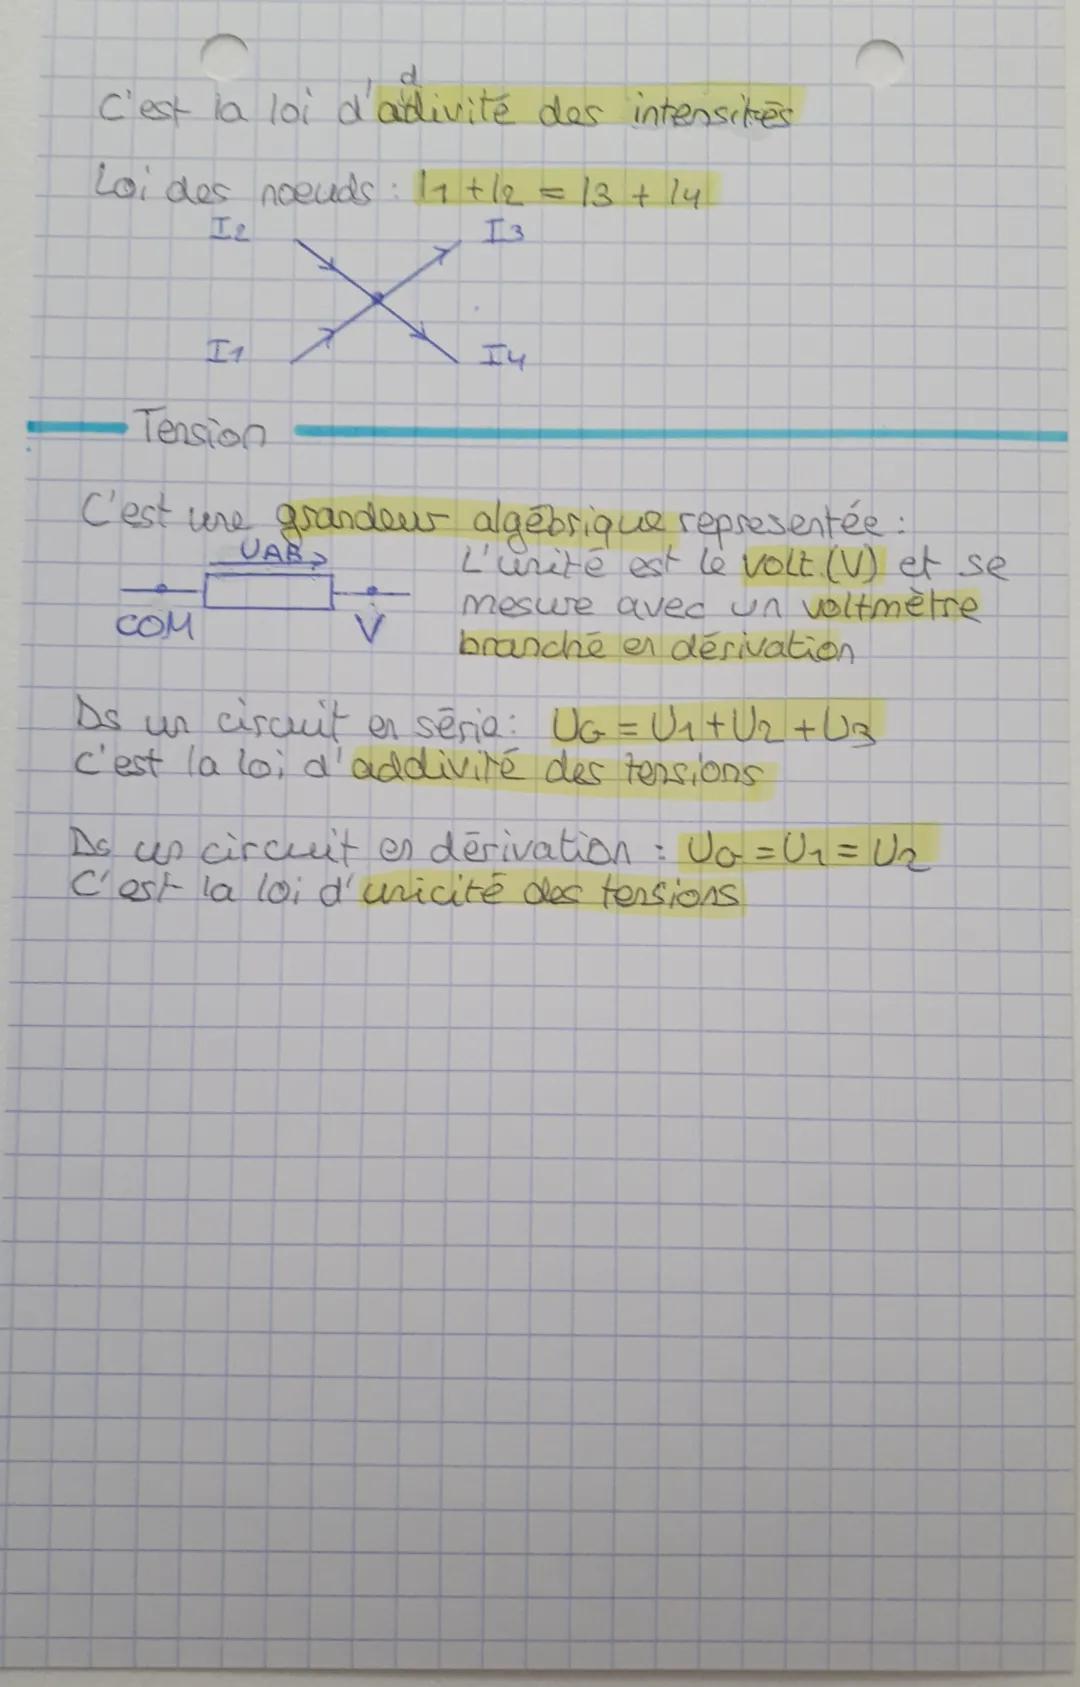 C'est la loi d'addivité des intensités
Loi des noeuds : I1 + I2 = I3 + I4
I2 I3
I1 I4
Tension
C'est une grandeur algébrique representée :
UAB
COM V
L'unité est le volt (V) et se
mesure avec un voltmètre
branché en dérivation
Ds un circuit en série : UG = U1 + U2 + U3
c'est la loi d'addivité des tensions
Ds un circuit en dérivation : UG = U1 = U2
C'est la loi d'unicité des tensions